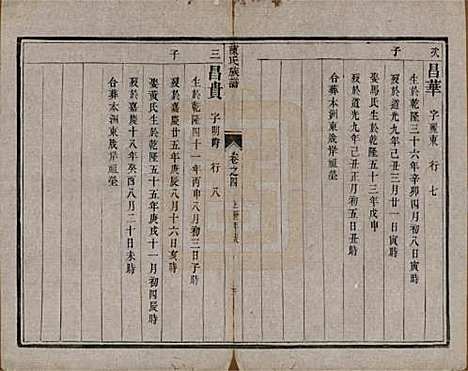 次
子
昌華 字耀東 行七
生於乾隆三十六年辛卯四月初八日寅時
歿於道光九年己丑三月廿一日寅時
娶馬氏生於乾隆五十三年戊申
歿於道光九年己丑正月初五日丑時
合葬本洲東岸祖塋
陳氏族譜
卷之四
三
子
昌貴 字明 行八
生於乾隆四十一年丙申八月初三日子時
歿於嘉慶廿五年庚辰八月十六日亥時
娶黄氏生於乾隆五十五年庚戌十一月初四辰時
歿於嘉慶十八年癸酉八月二十日未時
合葬本洲東岸祖塋